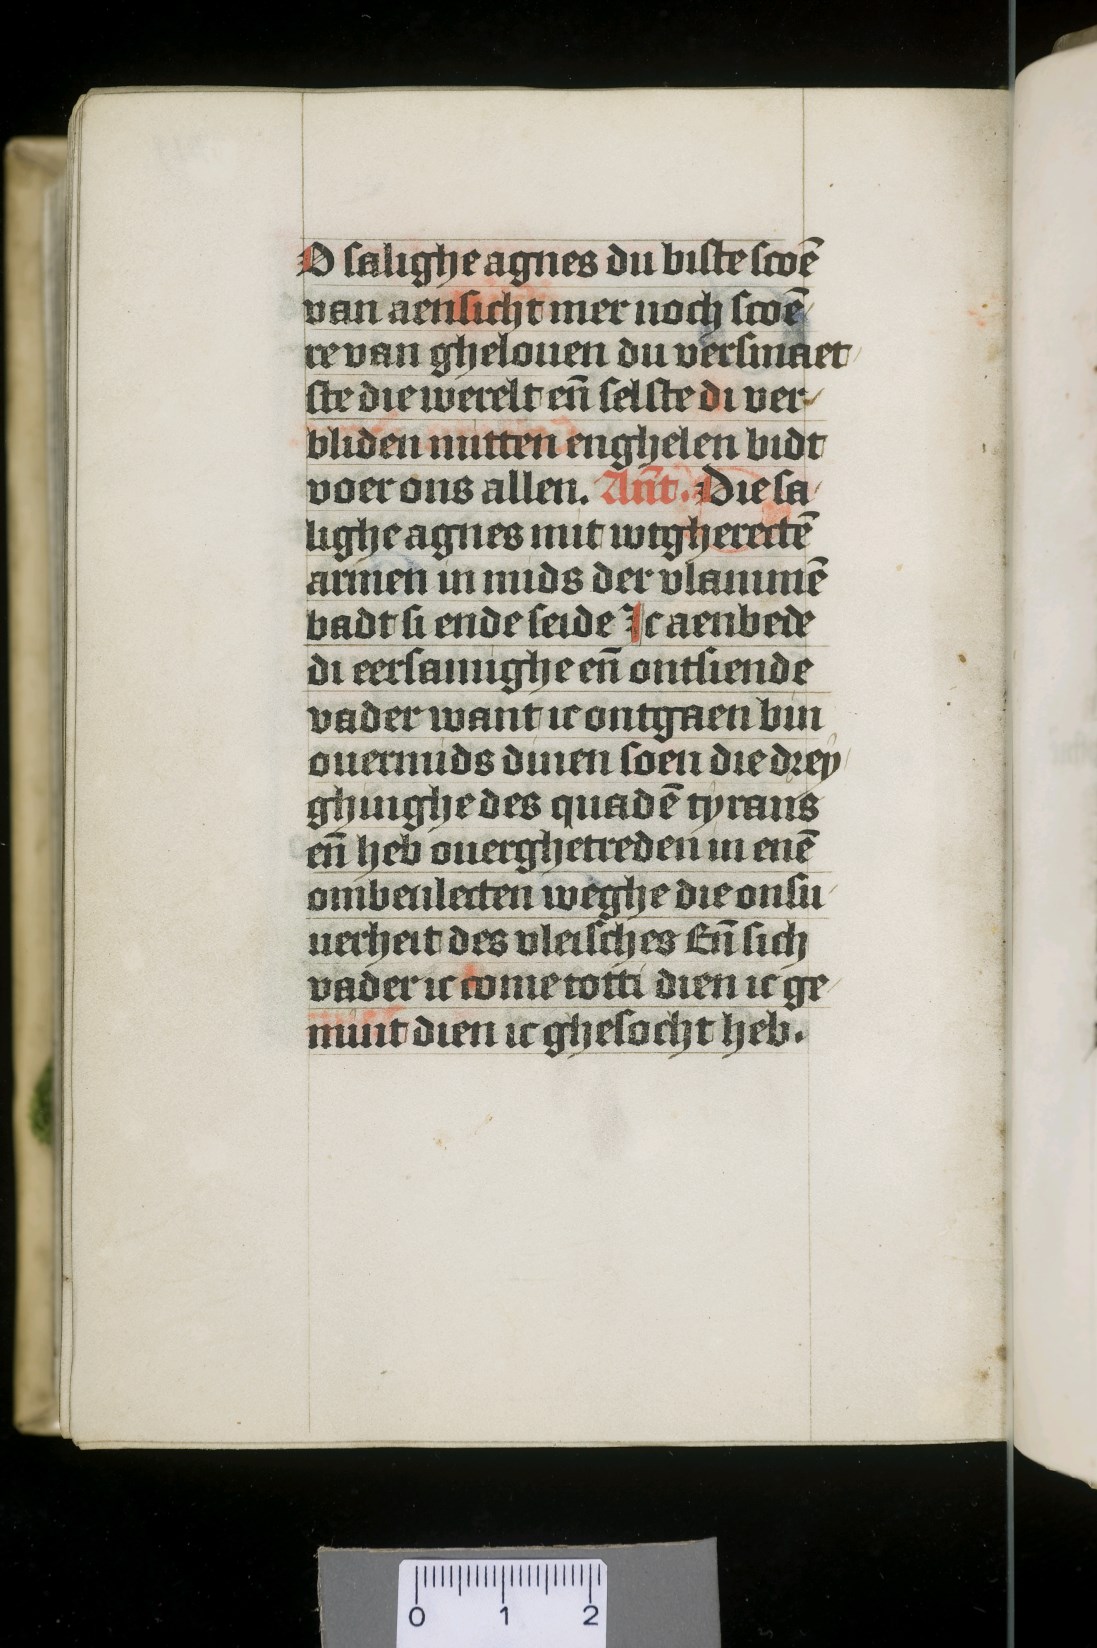 O salighe agnes du biste scoē
van aensicht mer noch scoē
re van ghelouen du versmaet
ste die werelt en̄ selste di ver
bliden mitten enghelen bidt
voer ons allen. An̄t. Die sa
lighe agnes mit wtgherectē
armen in mids der vlammē
badt si ende seide Ic aenbede
di eersamighe en̄ ontsiende
vader want ic ontgaen bin
ouermids dinen soen die drey
ghinghe des quadē tyrans
en̄ heb ouerghetreden in enē
ombeulecten weghe die onsu
uerheit des vleisches En̄ sich
vader ic come totti dien ic ge
mint dien ic ghesocht heb.
0 1 2